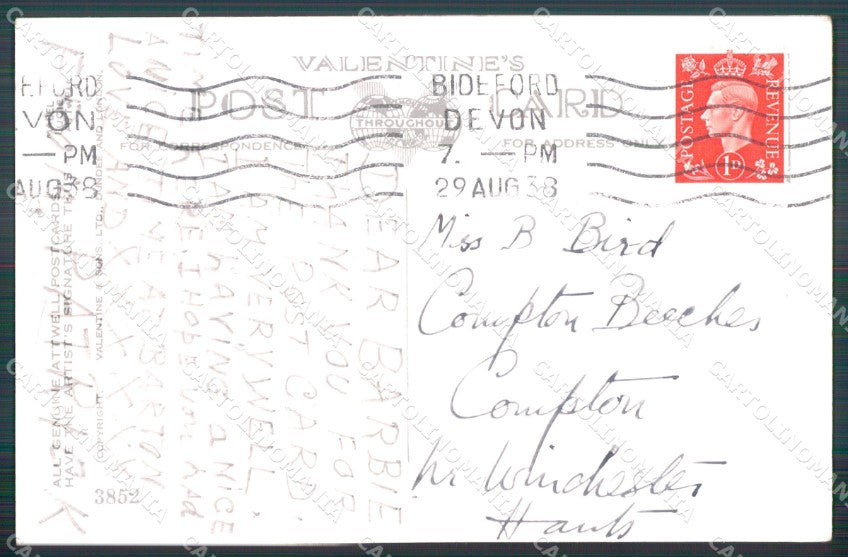 VALENTINE'S
POST CARD
THROUGHOUT
FOR CORRESPONDENCE
FOR ADDRESS ONLY
EFORD
EVON
— PM
AUG 38
BIDEFORD
DEVON
7. — PM
29 AUG 38
POSTAGE
REVENUE
1D
Miss B Bird
Compton Beeches
Compton
Nr Winchester
Hants
DEAR BARBIE
THANK YOU FOR
THE POST CARD
I AM VERY WELL.
I AM HAVING a NICE
TIME. I HOPE you had
A NICE AT MEAT BARTON
LOVE AND X X X X
PATRICK
ALL GENUINE ATTWELL POSTCARDS
HAVE THE ARTIST'S SIGNATURE THUS
COPYRIGHT VALENTINE & SONS LTD., DUNDEE AND LONDON.
3852
CARTOLINOMANIA